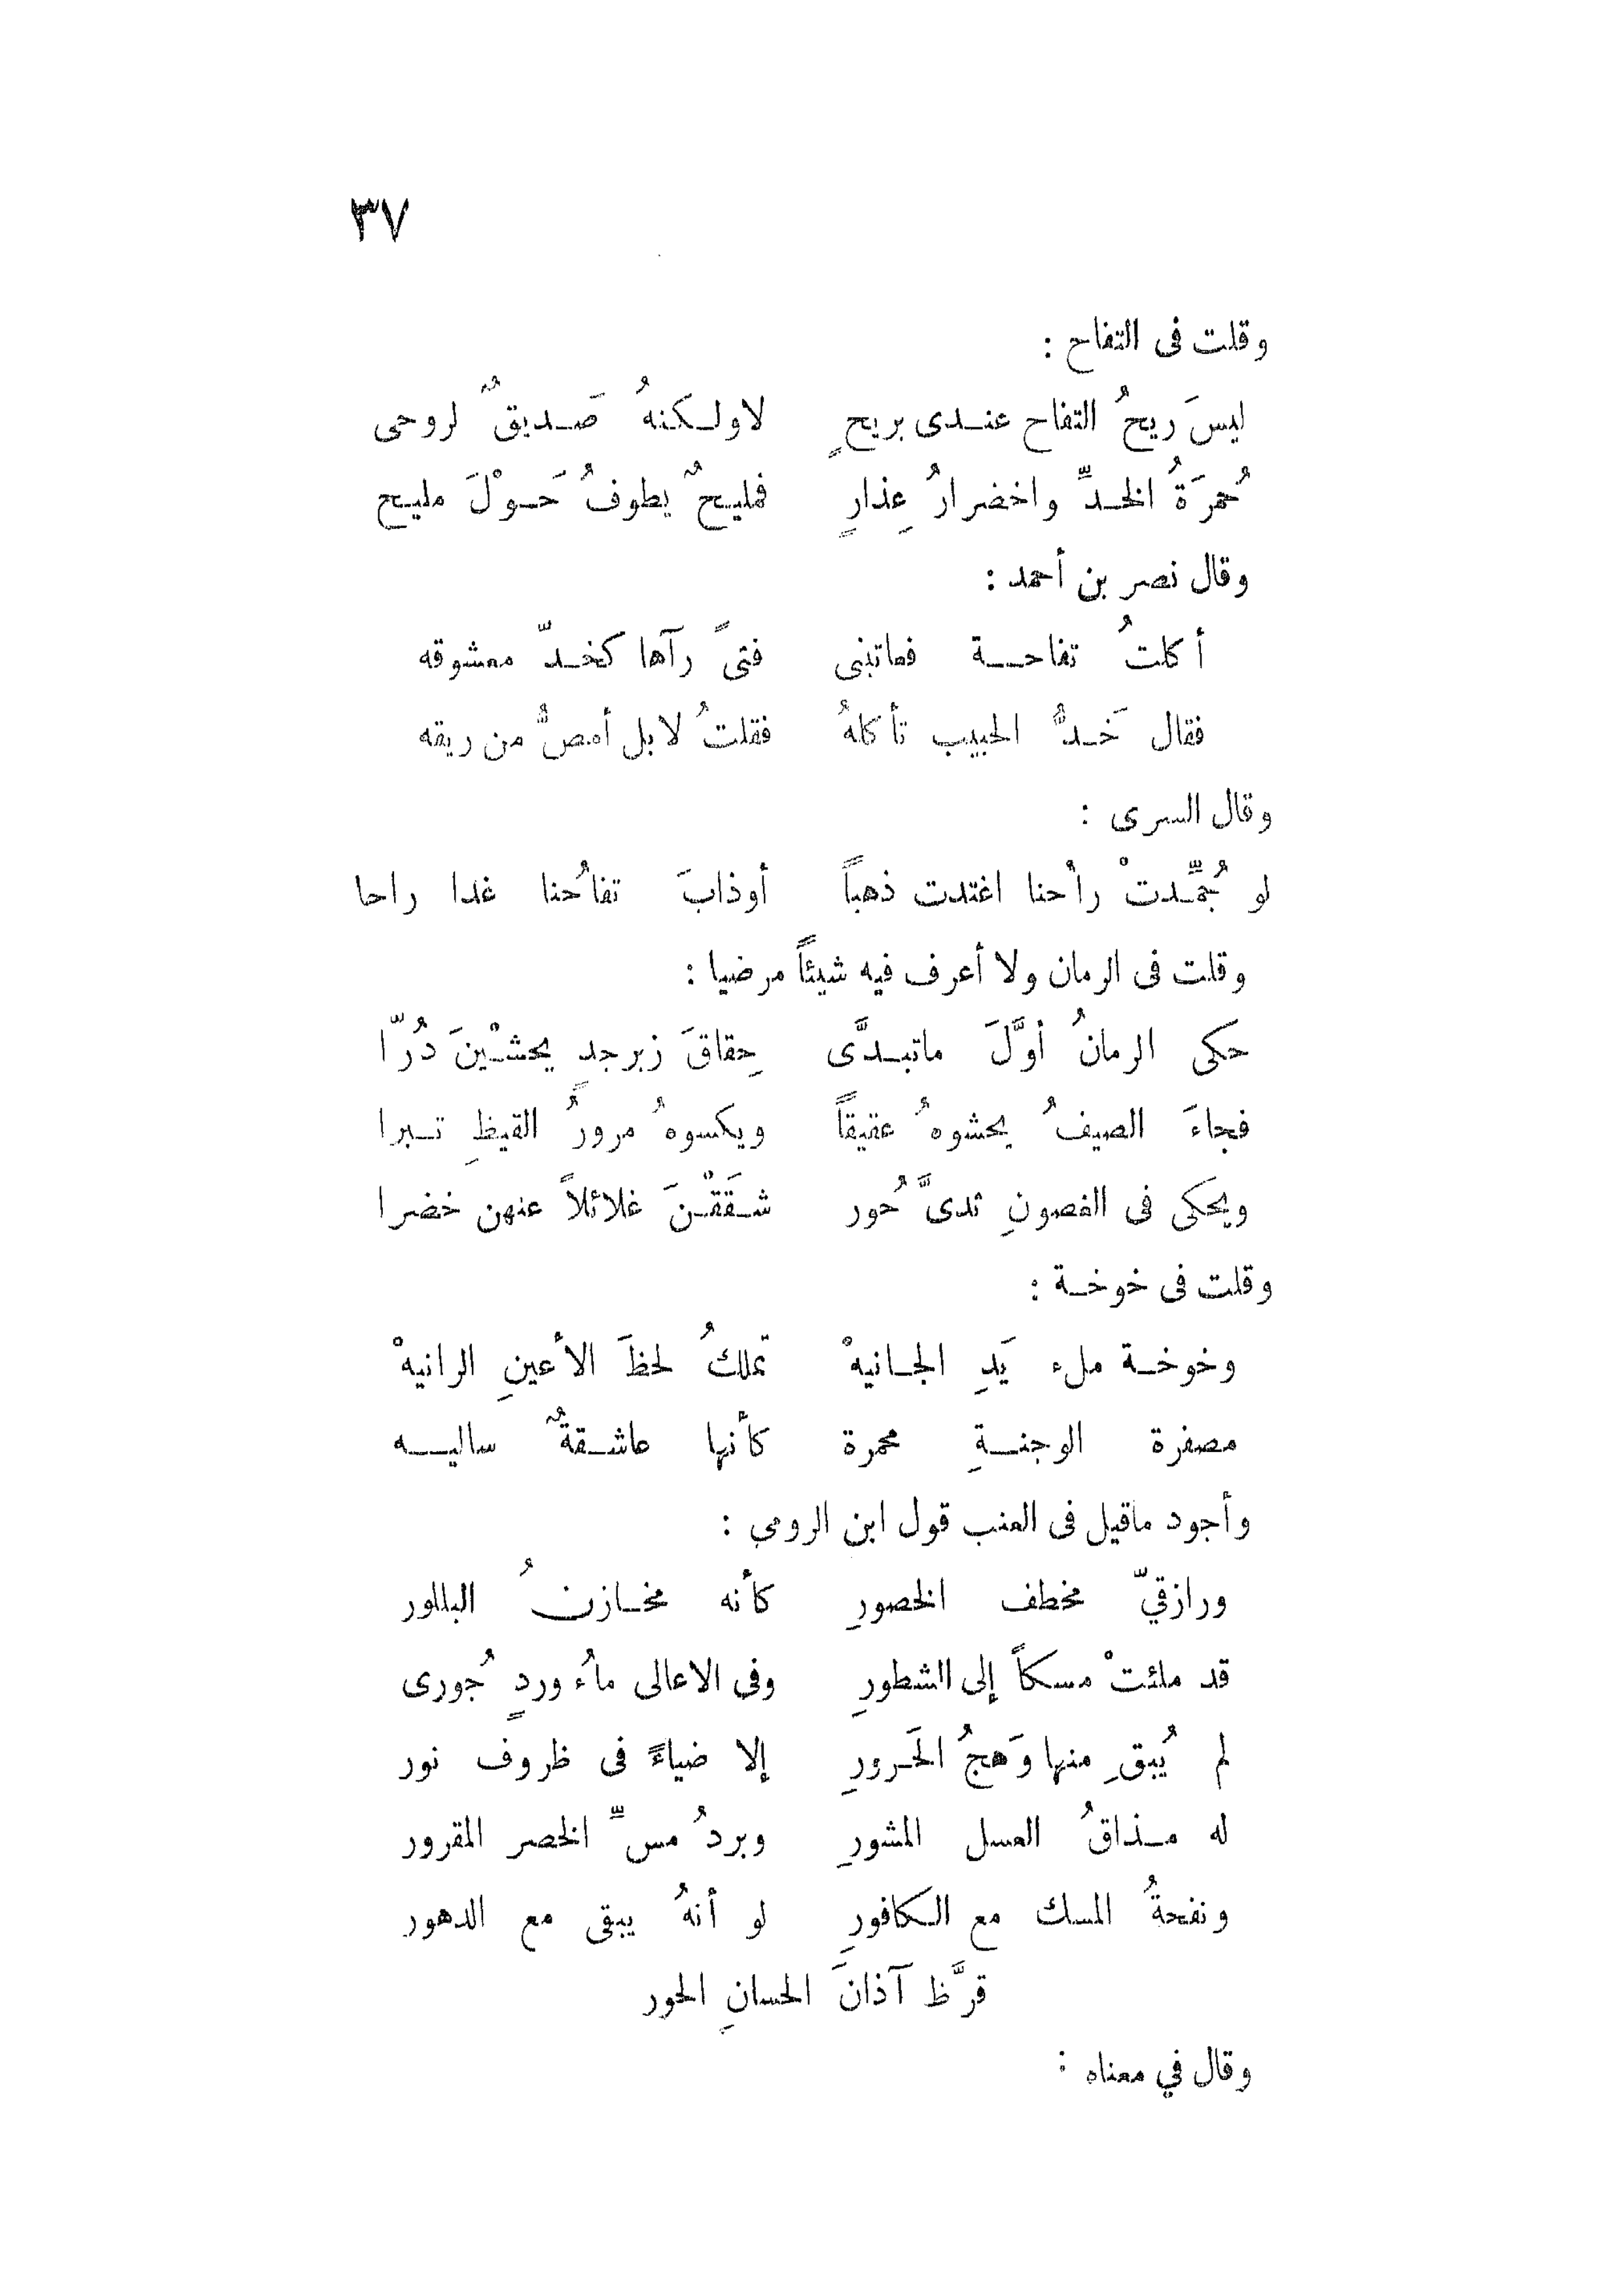 ٣٧
وقلت فى التفاح :
ليسَ ريحُ التفاح عندى بريحٍ لاولكنهُ صَديقٌ لروحى
حُمرَةُ الخدِّ واخضرارُ عِذارٍ فمليحٌ يطوفُ حَوْلَ مليح
وقال نصر بن أحمد :
أكلتُ تفاحة فعاتبنى فتىً رآها كخدّ معشوقه
فقال خَدُّ الحبيب تأكلهُ فقلتُ لابل أمصُّ من ريقه
وقال السرى :
لو جُمِّدتْ راحُنا اغتدت ذهباً أوذابَ تفاحُنا غدا راحا
وقلت فى الرمان ولا أعرف فيه شيئاً مرضيا :
حكى الرمانُ أوَّلَ ماتبدَّى حِقاقَ زبرجدٍ يحشْينَ دُرّا
فجاءَ الصيفُ يحشوهُ عقيقاً ويكسوهُ مرورُ القيظِ تبرا
ويحكى فى الغصونِ ثدىَّ حُور شقَقْنَ غلائلاً عنهن خضرا
وقلت فى خوخة :
وخوخة ملء يَدِ الجانيهْ تملكُ لحظَ الأعينِ الرانيهْ
مصفرة الوجنةِ محمرة كأنها عاشقةٌ ساليه
وأجود ماقيل فى العنب قول ابن الرومى :
ورازقيّ مخطف الخصورِ كأنه مخازنُ البللور
قد ملئتْ مسكاً إلى الشطورِ وفى الاعالى ماءُ وردٍ جُورى
لم يُبقِ منها وَهجُ الحَرورِ إلا ضياءً فى ظروف نور
له مذاقُ العسل المشورِ وبردُ مسِّ الخصر المقرور
ونفحةُ المسك مع الكافورِ لو أنهُ يبقى مع الدهور
قرَّظ آذانَ الحسانِ الحور
وقال في معناه :